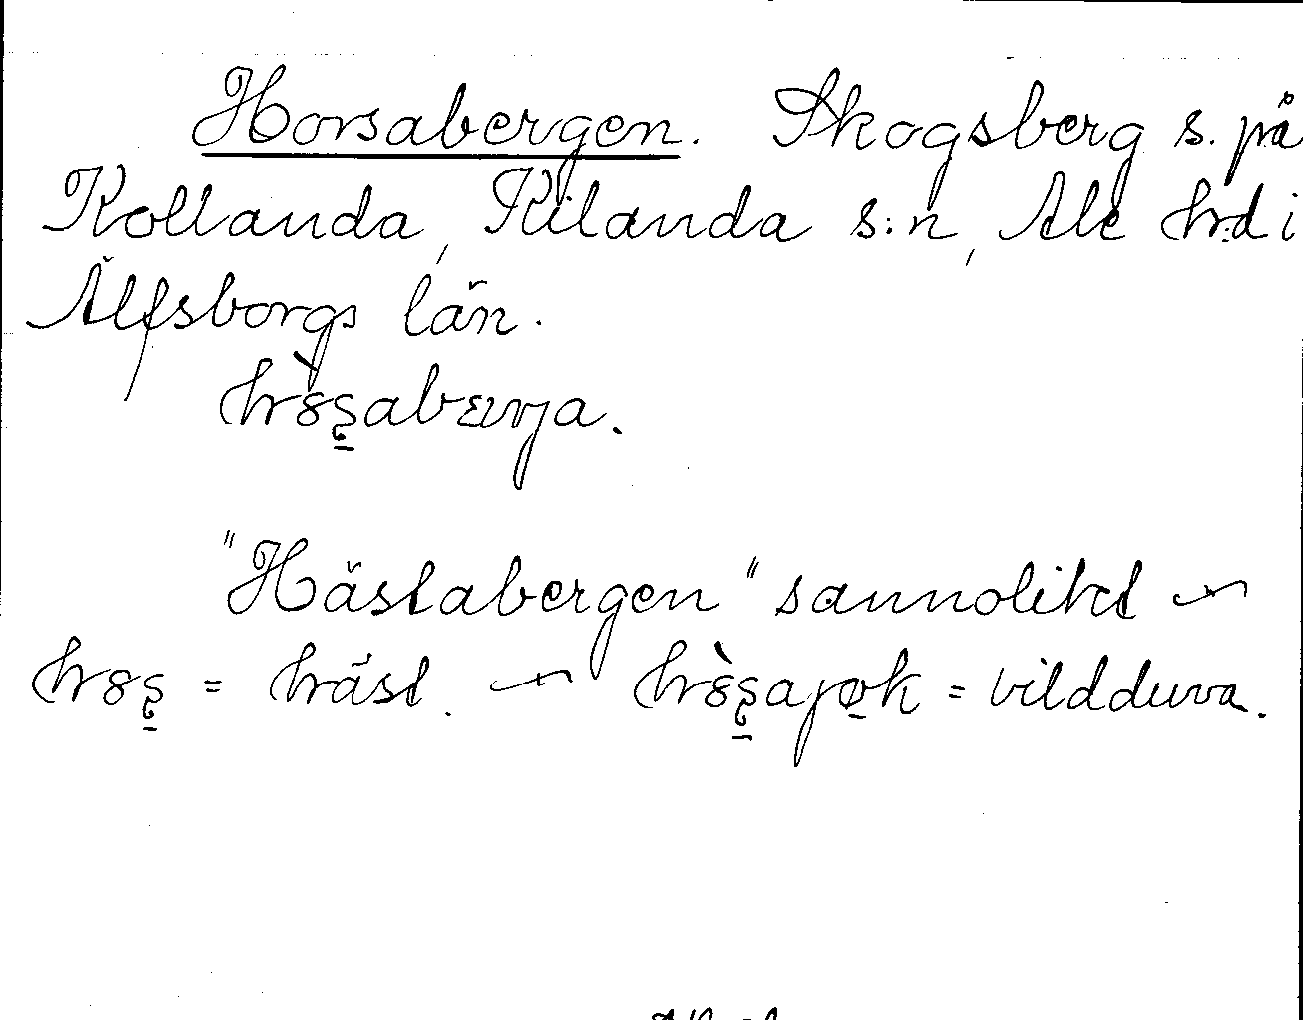 Horsabergen. Skogsberg s. på
Kollanda, Kilanda s:n, Ale hd i
Älfsborgs län.
"Hästabergen" sannolikt ~
= häst. ~ = vildduva.